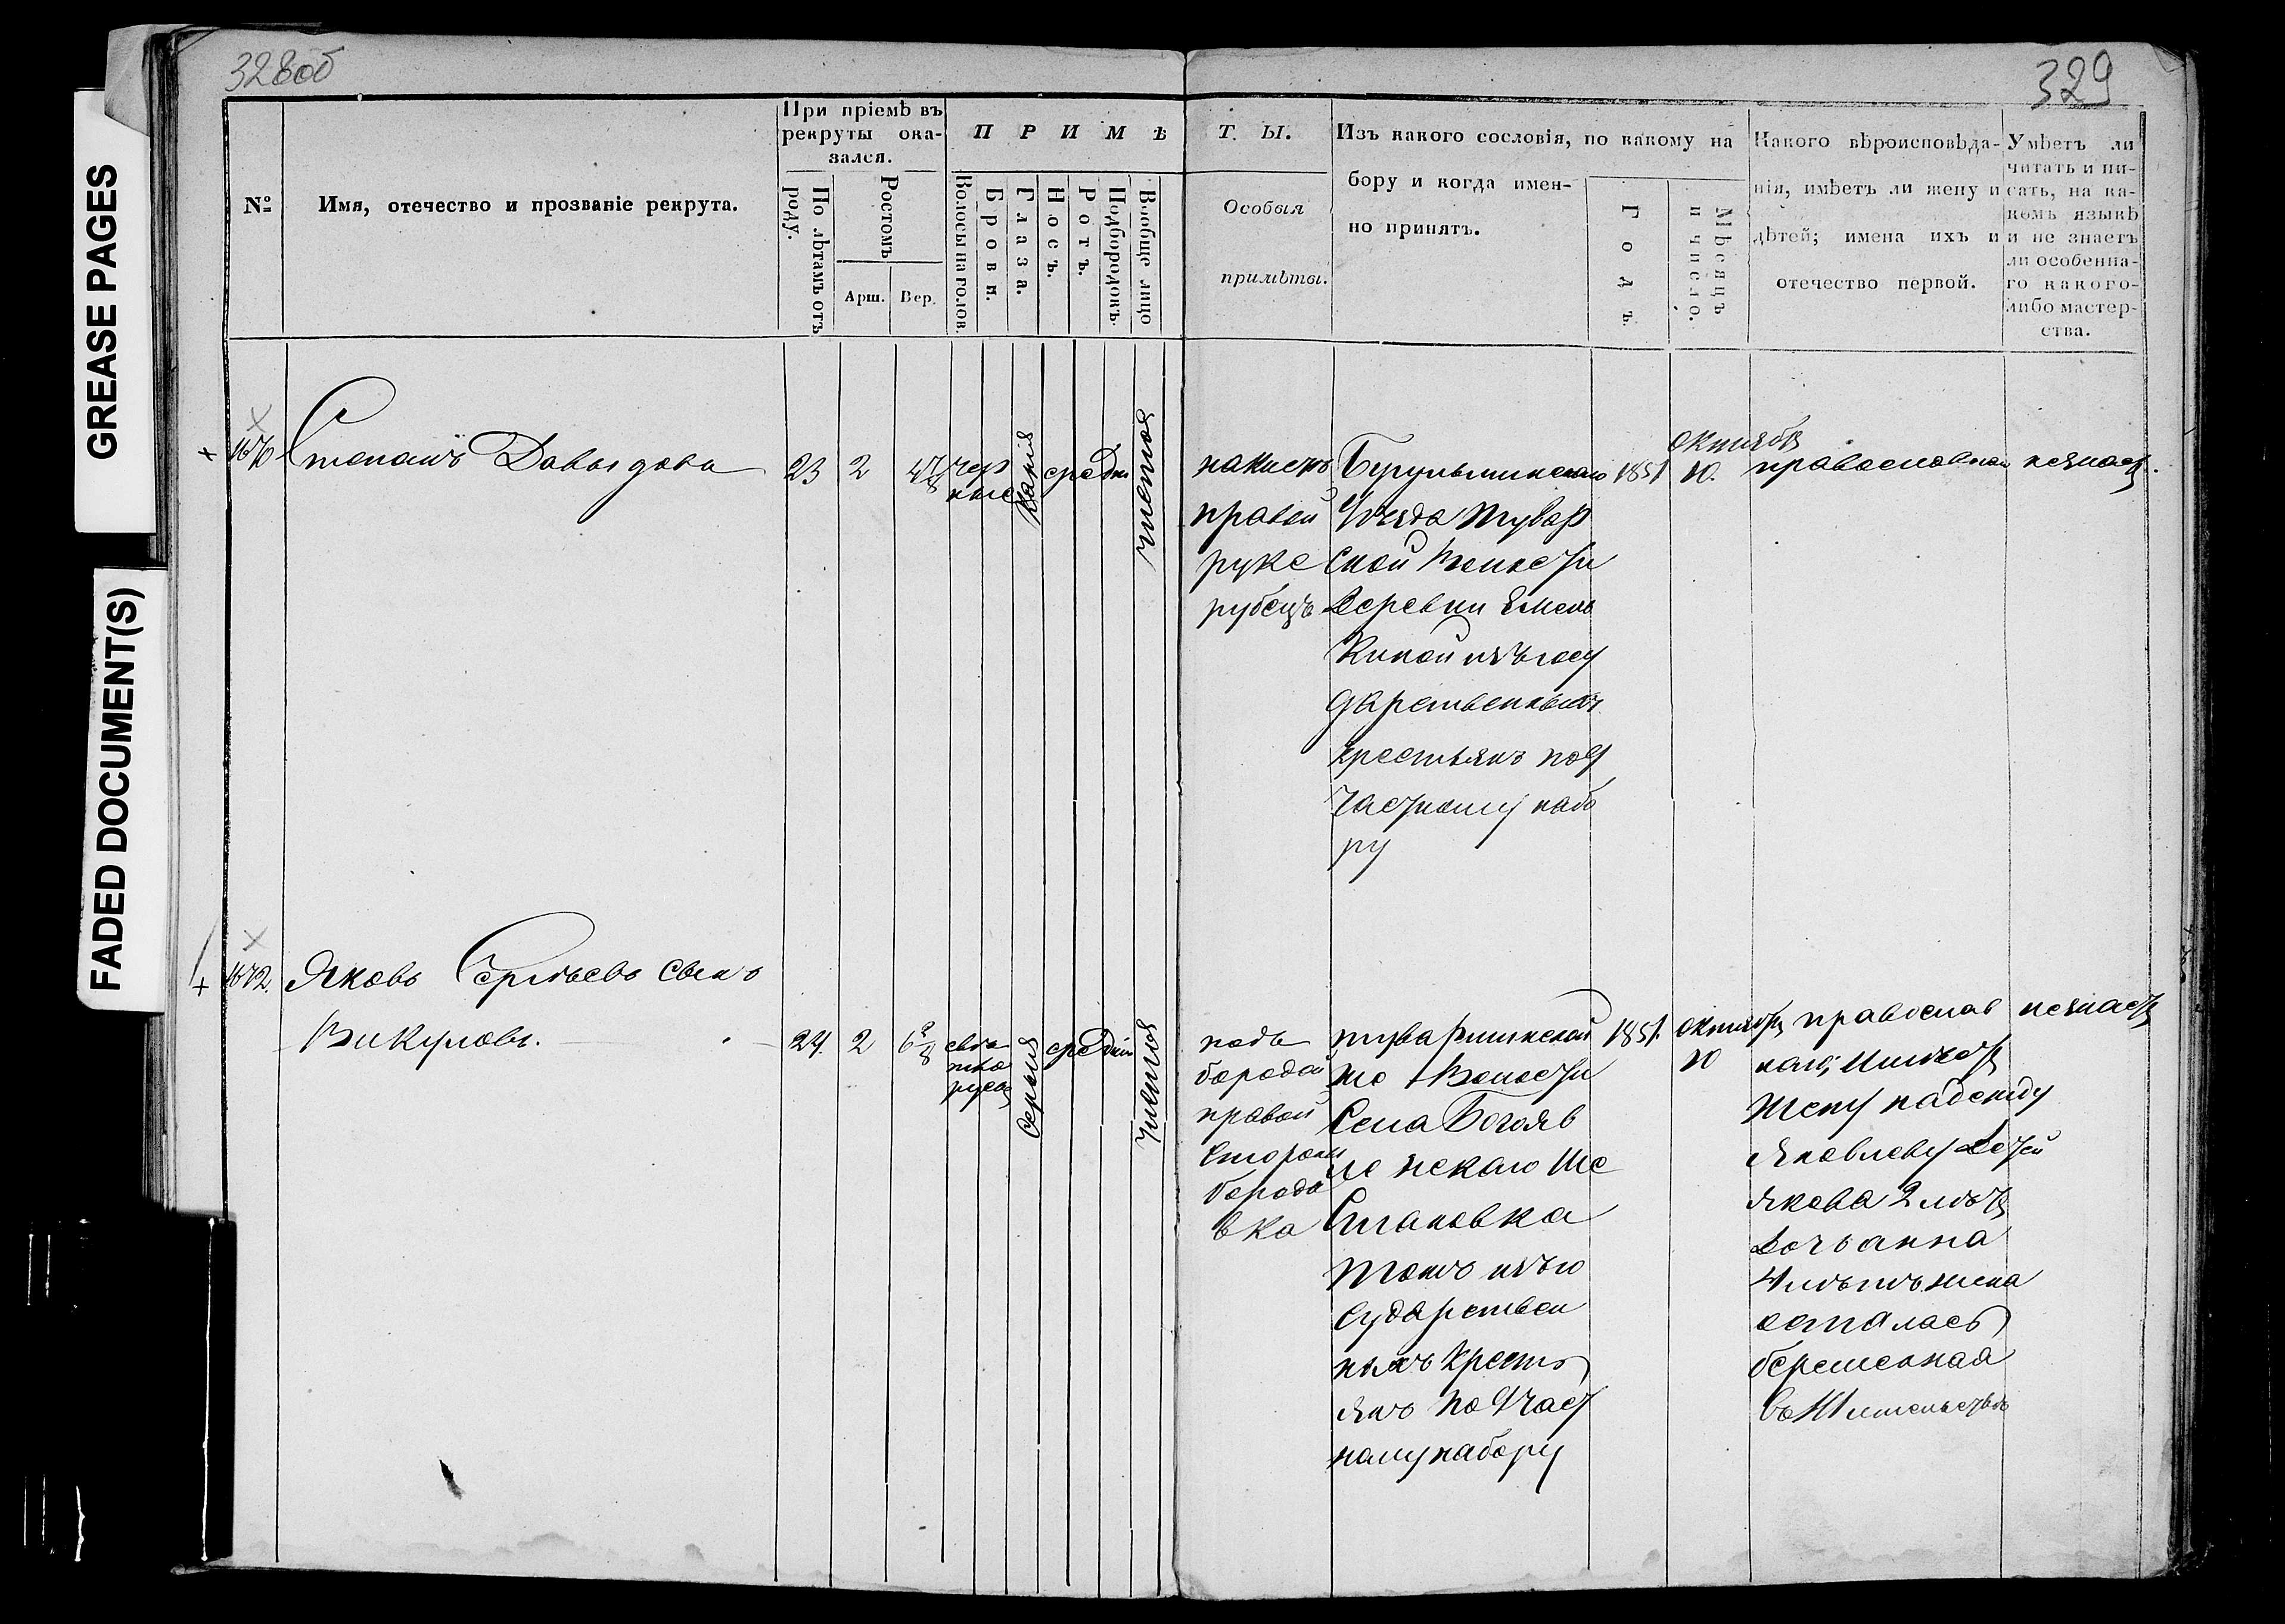 GREASE PAGES
FADED DOCUMENT(S)
328об
329
№
Имя, отечество и прозваніе рекрута.
При пріемѣ въ
рекруты ока-
зался.
По лѣтамъ отъ
роду.
Ростомъ
Арш.
Вер.
П Р И М Ѣ
Волосы на голов.
Брови.
Глаза.
Носъ.
Ротъ.
Подбородокъ.
Вообще лицо
Т Ы.
Особыя
примѣты.
Изъ какого сословія, по какому на
бору и когда имен-
но принятъ.
Годъ.
Мѣсяцъ
и число.
Какого вѣроисповѣда-
нія, имѣетъ ли жену и
дѣтей; имена ихъ и
отечество первой.
Умѣетъ ли
читать и пи-
сать, на ка-
комъ языкѣ
и не знаетъ
ли особенна-
го какого-
либо мастер-
ства.
Степанъ Давыдовъ
23
2
4 7/8
чер
ные
карія
средни
чистое
правой
руке
рубецъ
уѣзда тувар
ской волости
деревни Емель
киной изъ госу
дарственныхъ
крестьянъ по 9
частному набо
ру
1851
октября
10.
1672.
Яковъ Сергѣевъ сынъ
Викуловъ.
24.
2
6 3/8
свѣ
тло
русые
серыя
средніи
чистое
подъ
бородой
правой
стороны
борода
вка
туваршинской
же волости
села Богояв
ленскаго
Степановка
тожъ изъ го
сударствен
ныхъ кресть
янъ по 9 част
ному набору
1851.
октября
10
православ
наго, имѣетъ
жену надежду
Яковлеву детей
Якова 2 летъ
дочь анна
4 летъ жена
осталась
беременная
въ жительствѣ